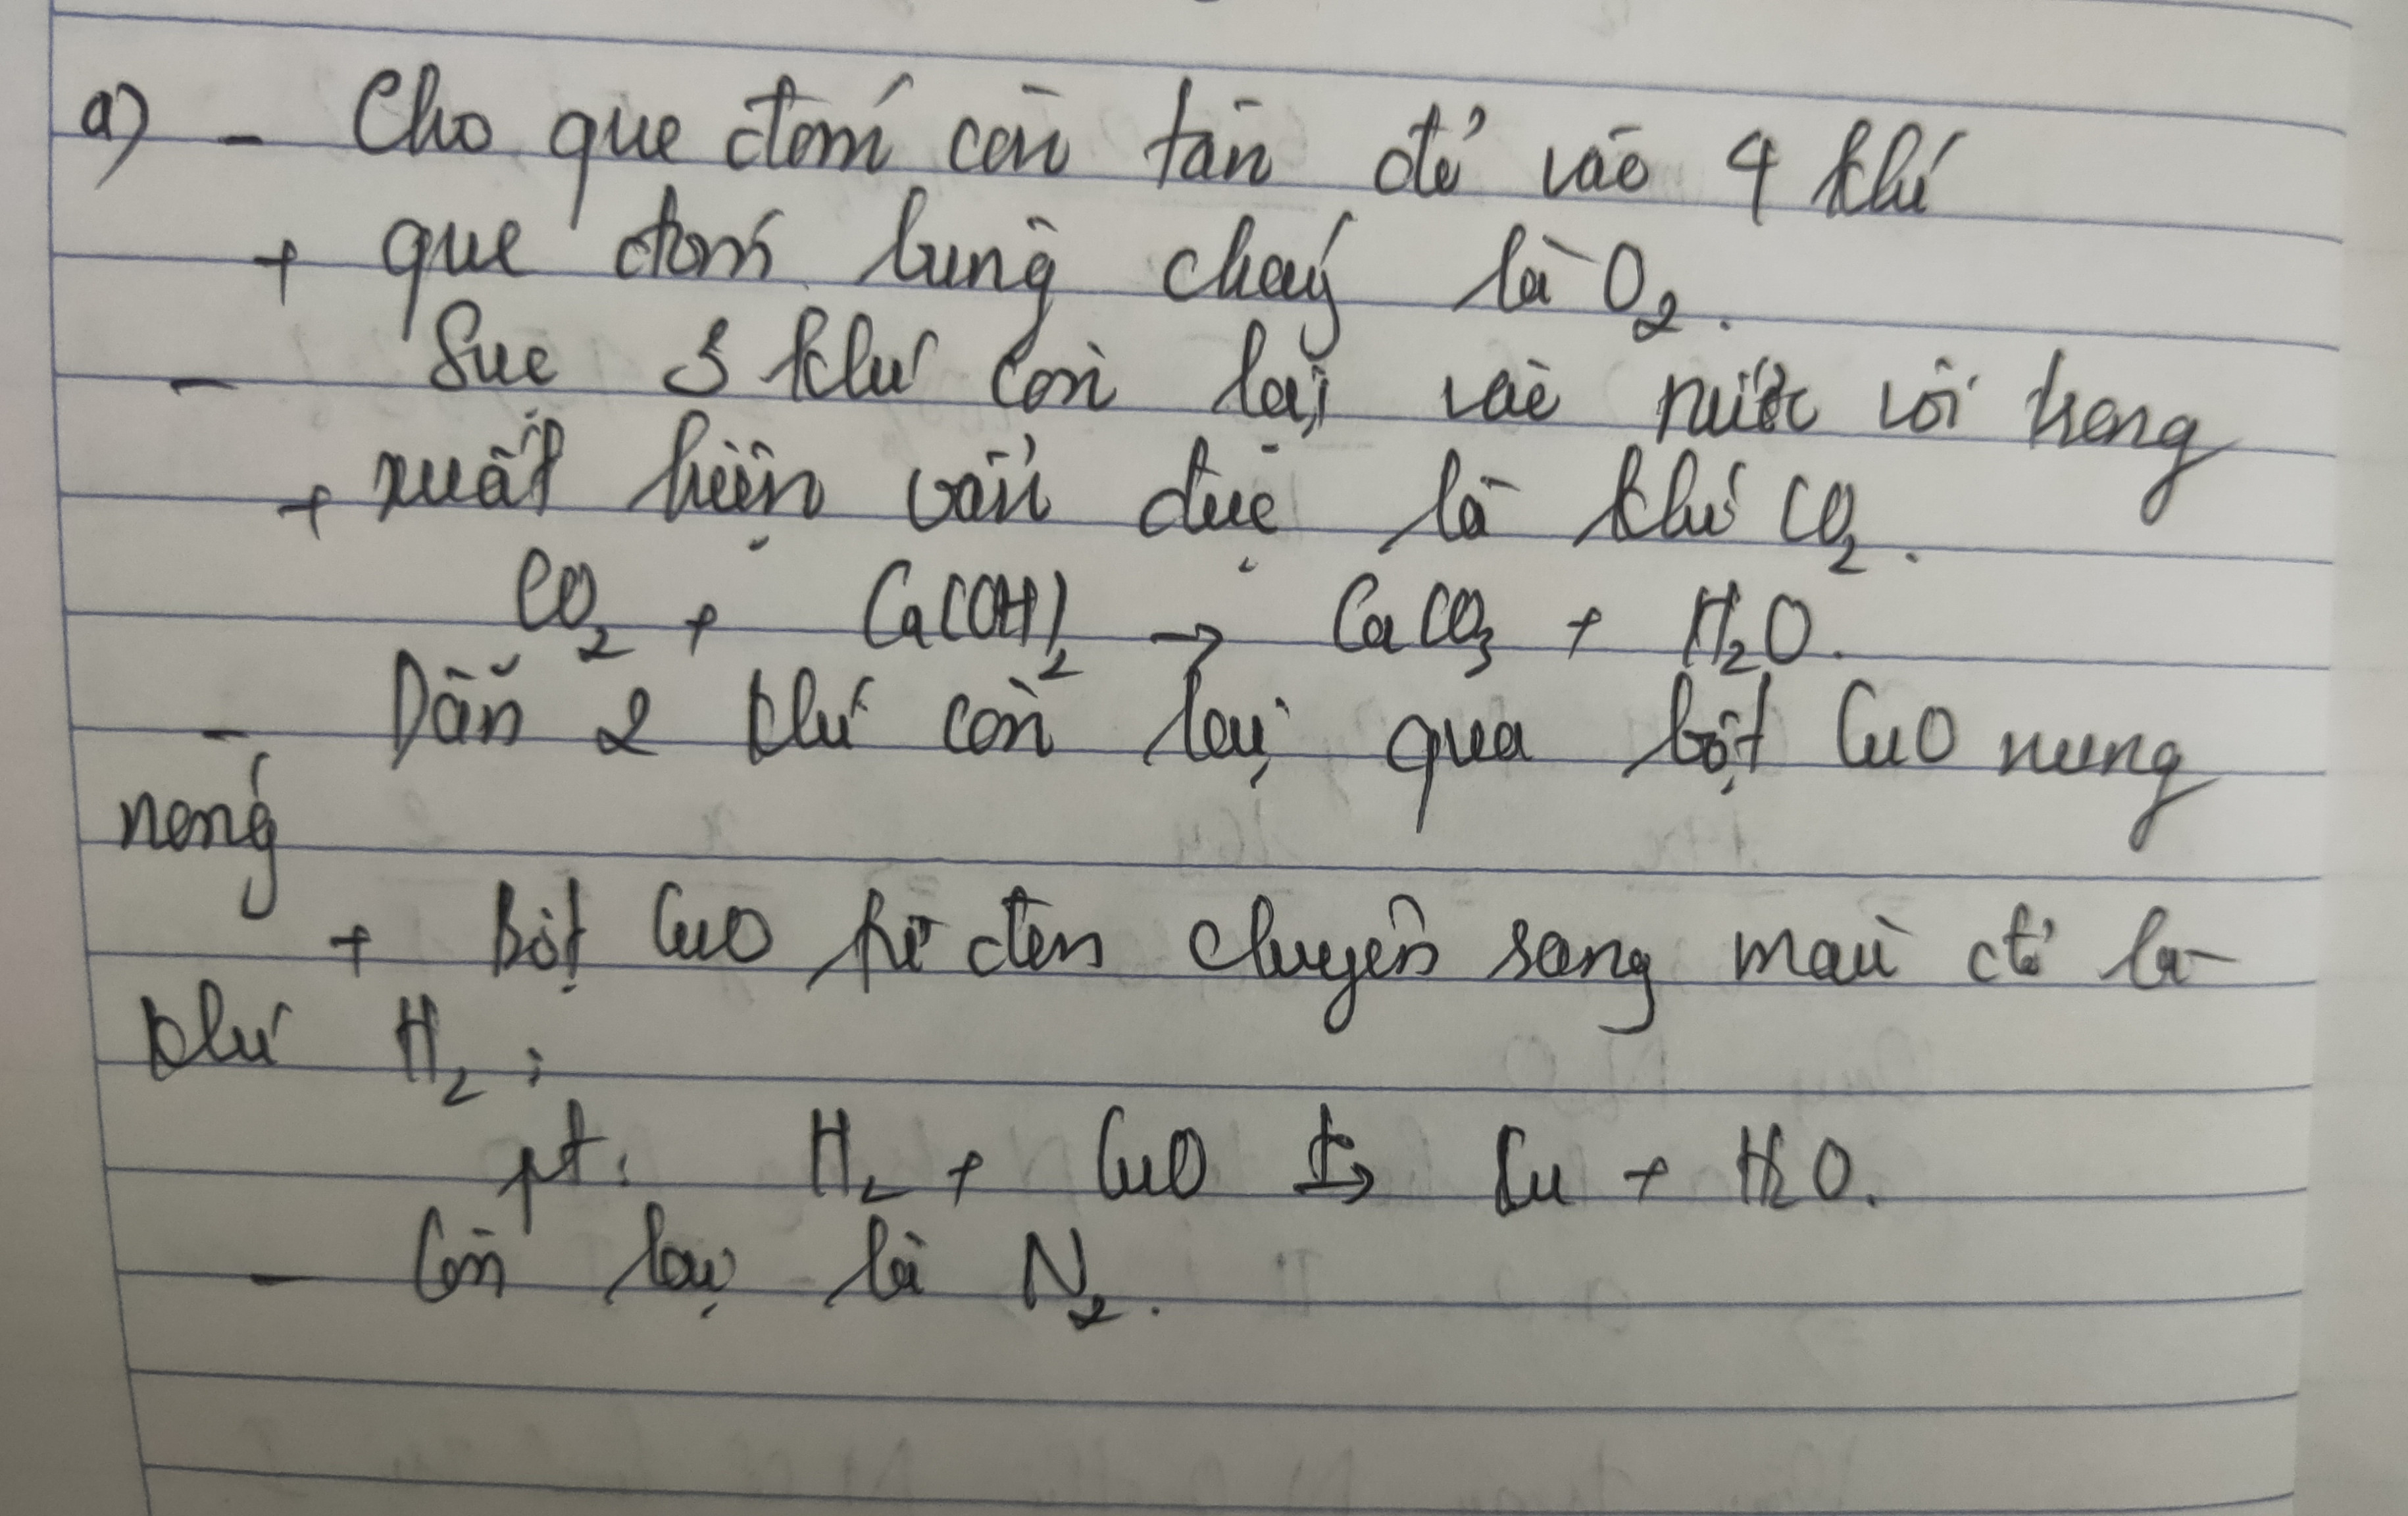 a) - Cho que đóm còn tàn đỏ vào 4 khí
+ que đóm bùng cháy là O₂.
- Sục 3 khí còn lại vào nước vôi trong
+ xuất hiện vẩn đục là khí CO₂.
CO₂ + Ca(OH)₂ → CaCO₃ + H₂O.
- Dẫn 2 khí còn lại qua bột CuO nung
nóng
+ Bột CuO từ đen chuyển sang màu đỏ là
khí H₂ :
pt: H₂ + CuO t°→ Cu + H₂O.
- Còn lại là N₂.